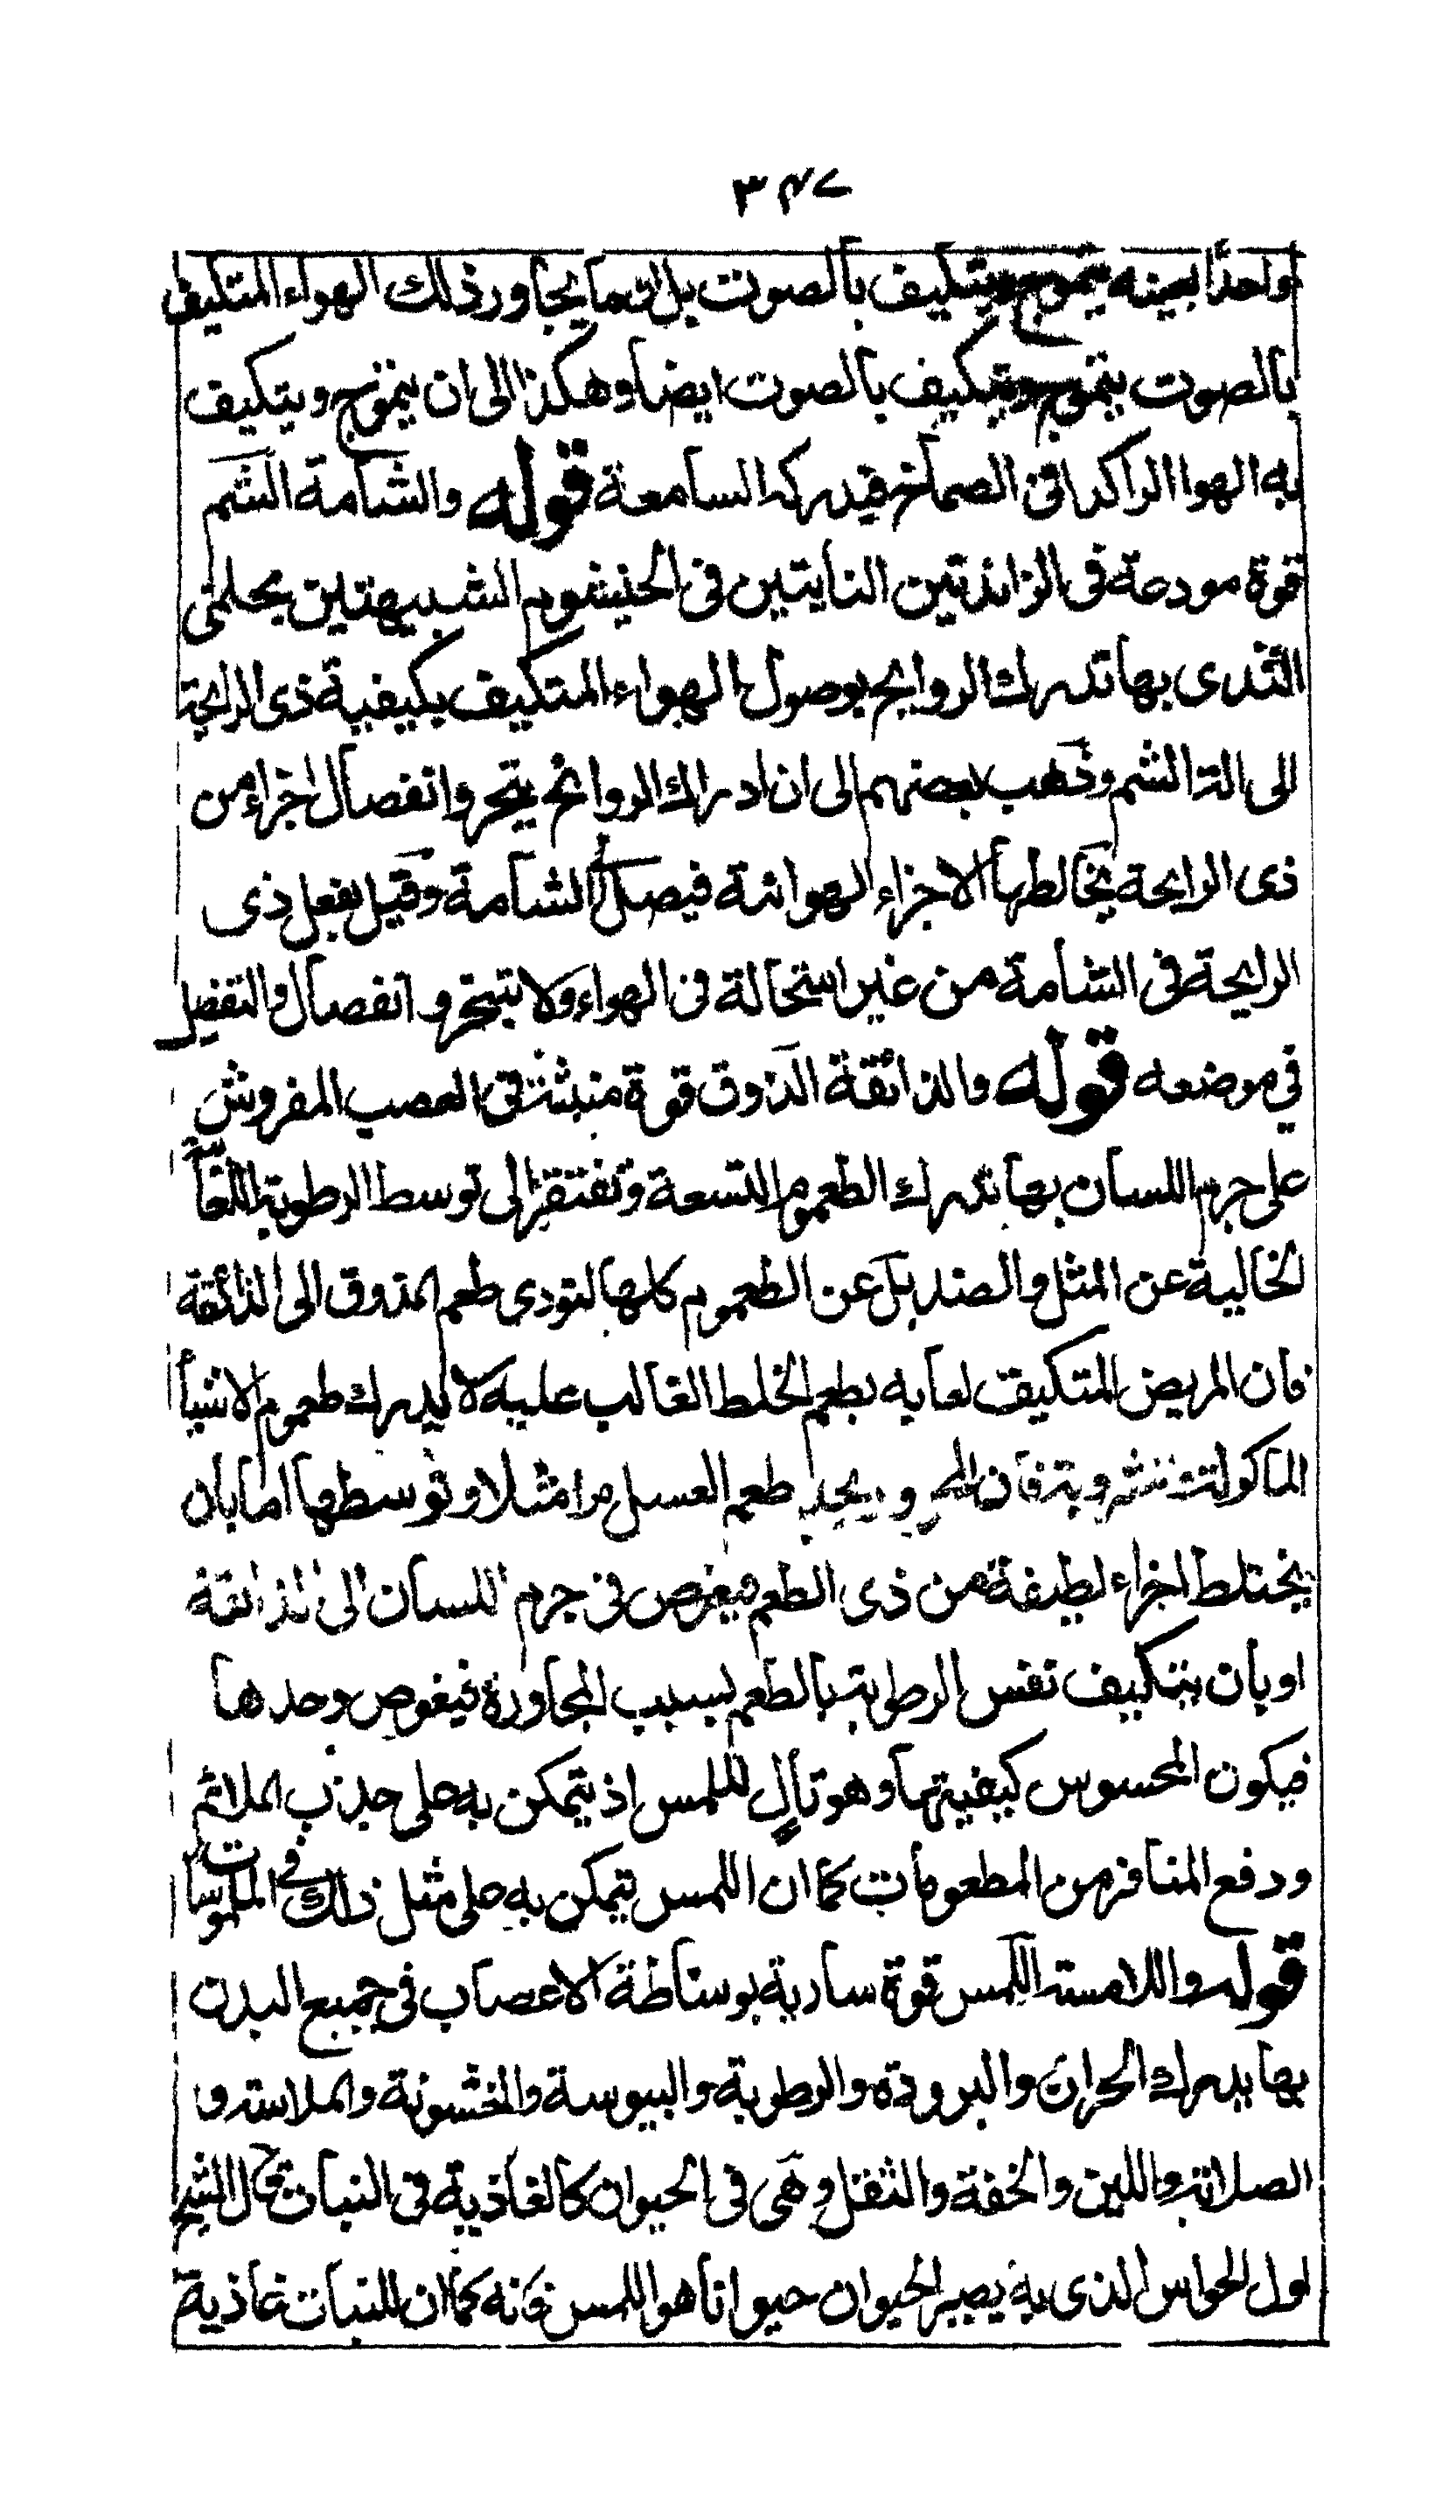 ٣٤٧
واحدًا بعينه يتموج ويتكيف بالصوت بل ان ما يجاور ذلك الهواء المتكيف
بالصوت يتموج ويتكيف بالصوت ايضا وهكذا الى ان يتموج ويتكيف
به الهوا الراكد فى الصماخ فيدركه السامعة قوله والشامة الشم
قوة مودعة فى الزائدتين النابتين فى الخيشوم الشبيهتين بحلمتى
الثدى بها تدرك الروايح بوصول الهواء المتكيف بكيفية ذى الرايحة
الى الة الشم وذهب بعضهم الى ان ادراك الروائح بتبخر وانفصال اجزاء من
ذى الرايحة يخالطها الاجزاء الهوائة فيصل الشامة وقيل بفعل ذى
الرايحة فى الشامة من غير استحالة فى الهواء ولا بتبخر وانفصال والتفصيل
في موضعه قوله والذائقة الذوق قوة منبثة فى العصب المفروش
على جرم اللسان بها تدرك الطعوم التسعة وتفتقر الى توسط الرطوبة اللعابية
الخالية عن المثل والضد بل عن الطعوم كلها لتودى طعم المذوق الى الذائقة
فان المريض المتكيف لعابه بطعم الخلط الغالب عليه لا يدرك طعوم الاشيا
الماكولة ويجد طعم العسل مرا مثلا وتوسطها اما بان
يختلط اجزاء لطيفة من ذى الطعم فيغوص فى جرم اللسان الى الذائقة
او بان يتكيف نفس الرطوبة بالطعم بسبب المجاورة فيغوص وحدها
فيكون المحسوس كيفيتها وهو تالٍ للمس اذ يتمكن به على جذب الملائم
ودفع المنافر من المطعومات كما ان اللمس يتمكن به على مثل ذلك فى الملموسات
قوله واللامسة اللمس قوة سارية بوساطة الاعصاب فى جميع البدن
بها يدرك الحرارة والبرودة والرطوبة واليبوسة والخشونة والملاسة و
الصلابة واللين والخفة والثقل وهى فى الحيوان كالغاذية فى النبات قال الشيخ
اول الحواس الذى به يصير الحيوان حيوانا هو اللمس فانه كما ان للنبات غاذية